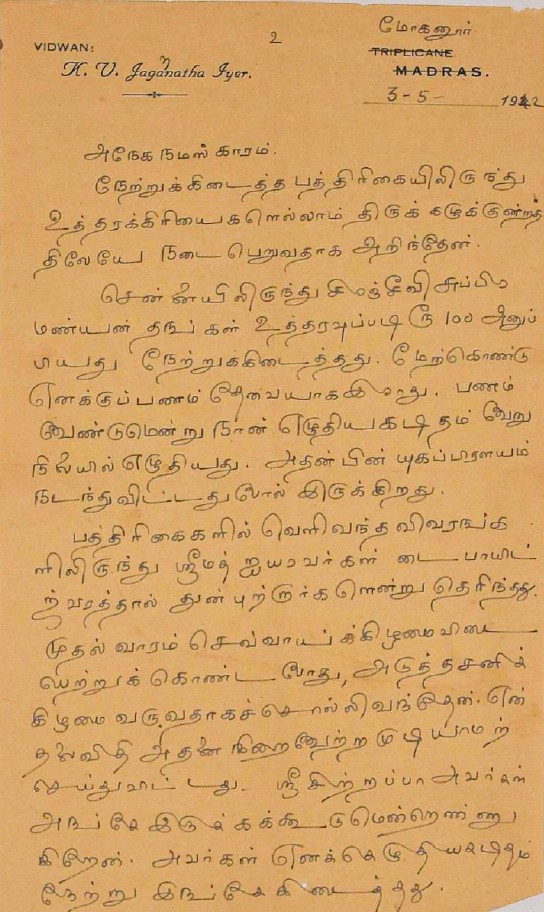 2
மோகனூர்
VIDWAN:
TRIPLICANE
K. V. Jaganatha Iyer.
MADRAS.
3-5- 1942
அநேக நமஸ்காரம்.
நேற்றுக்கிடைத்த பத்திரிகையிலிருந்து
உத்தரக்கிரியைகளெல்லாம் திருக்கழுக்குன்றத்
திலேயே நடை பெறுவதாக அறிந்தேன்.
சென்னையிலிருந்து சிரஞ்சீவி சுப்பிர
மண்யன் தங்கள் உத்தரவுப்படி ரூ 100 அனுப்
பியது நேற்றுக்கிடைத்தது. மேற்கொண்டு
எனக்குப்பணம் தேவையாகஇராது. பணம்
வேண்டுமென்று நான் எழுதியகடிதம் வேறு
நிலையில் எழுதியது. அதன் பின் யுகப்பிரளயம்
நடந்துவிட்டதுபோல் இருக்கிறது.
பத்திரிகைகளில் வெளிவந்த விவரங்க
ளிலிருந்து ஸ்ரீமத் ஐயரவர்கள் டைபாயிட்
ஜ்வரத்தால் துன்புற்றார்களென்று தெரிந்தது.
முதல் வாரம் செவ்வாய்க்கிழமைவிடை
பெற்றுக் கொண்ட போது, அடுத்தசனிக்
கிழமை வருவதாகச்சொல்லிவந்தேன். என்
தலைவிதி அதனை நிறைவேற்ற முடியாமற்
செய்துவிட்டது. ஸ்ரீ சிற்றப்பா அவர்கள்
அங்கே இருக்கக்கூடுமென்றெண்ணு
கிறேன். அவர்கள் எனக்கெழுதியகடிதம்
நேற்று இங்கே கிடைத்தது.